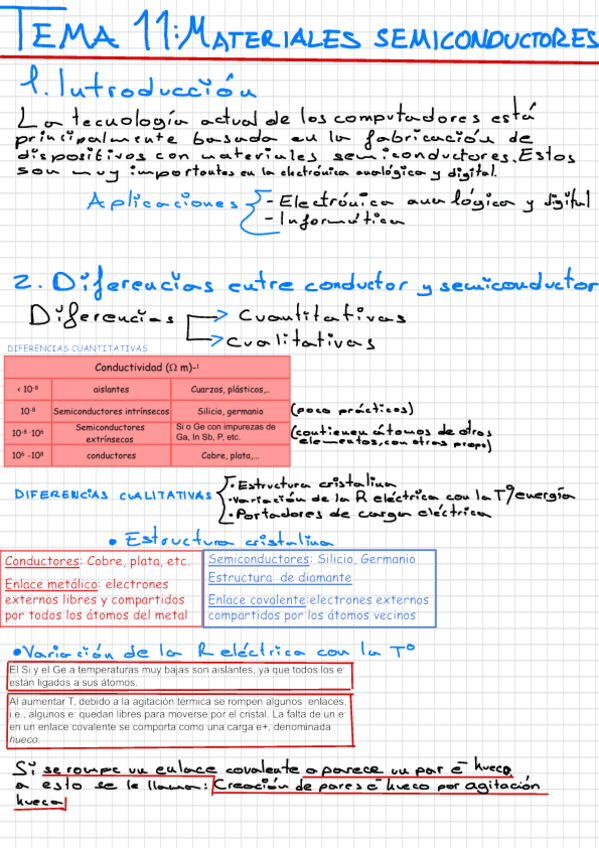 TEMA 11: MATERIALES SEMICONDUCTORES
1. Introducción
La tecnología actual de los computadores está
principalmente basada en la fabricación de
dispositivos con materiales semiconductores. Estos
son muy importantes en la electrónica analógica y digital.
Aplicaciones
- Electrónica analógica y digital
- Informática
2. Diferencias entre conductor y semiconductor
Diferencias
→ Cuantitativas
→ Cualitativas
DIFERENCIAS CUANTITATIVAS
Conductividad (Ω m)-1
< 10-8 aislantes Cuarzos, plásticos,..
10-8 Semiconductores intrínsecos Silicio, germanio (poco prácticos)
10-8 -106 Semiconductores extrínsecos Si o Ge con impurezas de Ga, In Sb, P, etc. (contienen átomos de otros elementos, con otras prop.)
106 -108 conductores Cobre, plata,...
DIFERENCIAS CUALITATIVAS
• Estructura cristalina
• Variación de la R eléctrica con la Tº/energía
• Portadores de carga eléctrica
• Estructura cristalina
Conductores: Cobre, plata, etc.
Enlace metálico: electrones
externos libres y compartidos
por todos los átomos del metal
Semiconductores: Silicio, Germanio
Estructura de diamante
Enlace covalente:electrones externos
compartidos por los átomos vecinos
• Variación de la R eléctrica con la Tº
El Si y el Ge a temperaturas muy bajas son aislantes, ya que todos los e-
están ligados a sus átomos.
Al aumentar T, debido a la agitación térmica se rompen algunos enlaces,
i.e., algunos e- quedan libres para moverse por el cristal. La falta de un e-
en un enlace covalente se comporta como una carga e+, denominada
hueco.
Si se rompe un enlace covalente aparece un par e- hueco,
a esto se le llama: Creación de pares e- hueco por agitación
hueco